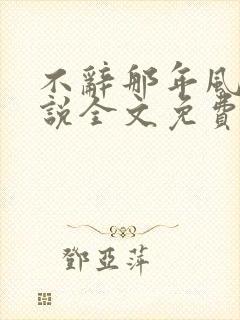 不辭那年風
說全文免費
鄧亞萍